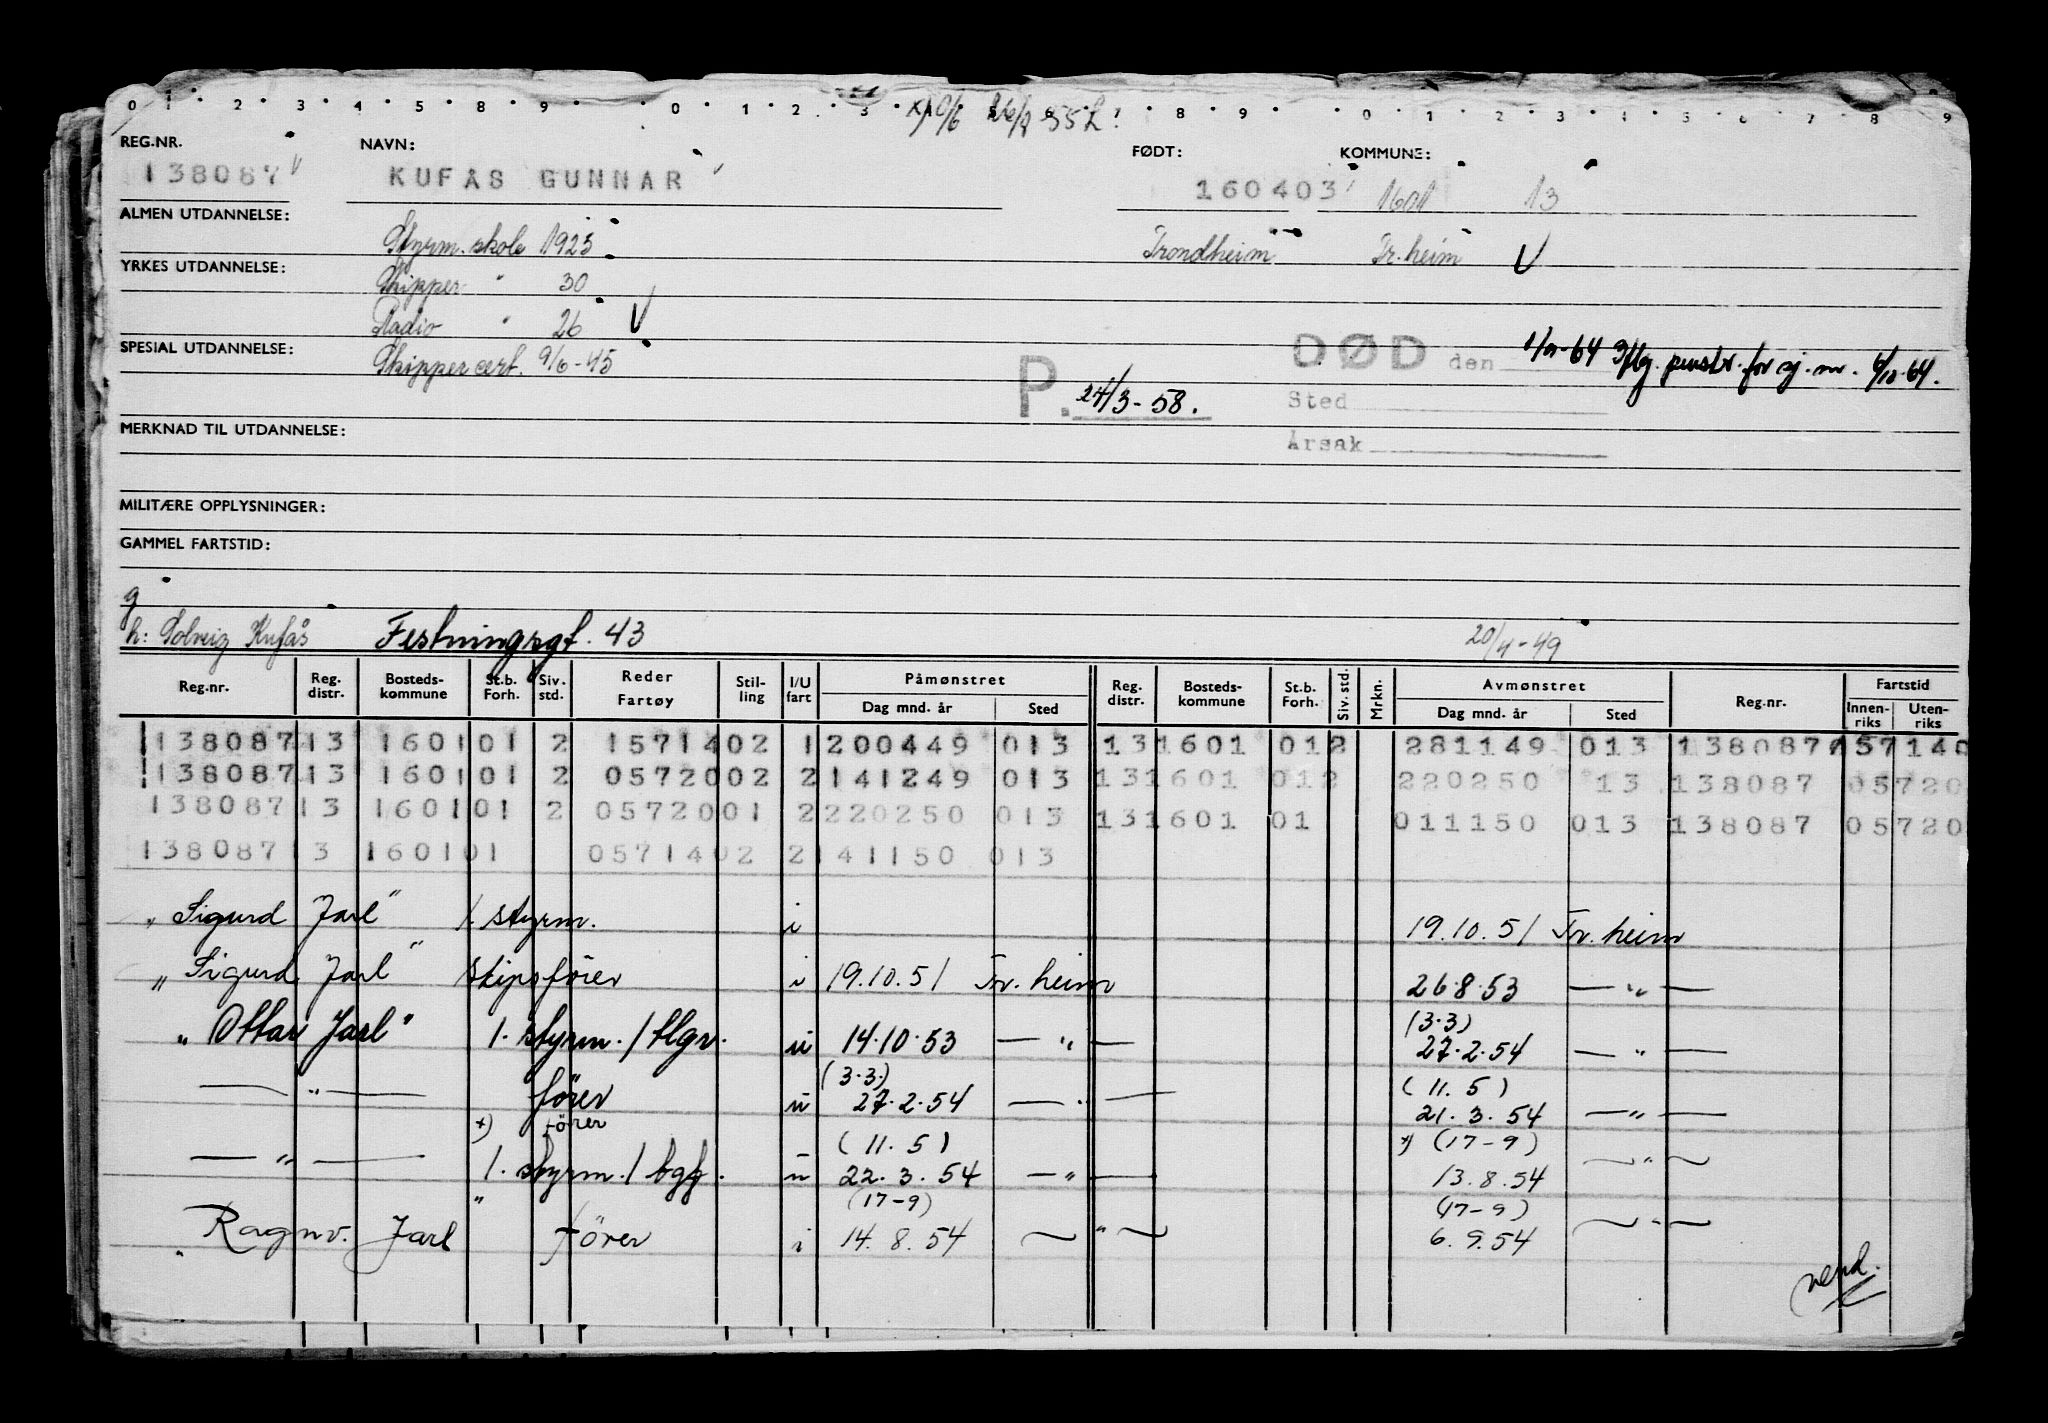 0 1 2 3 4 5 6 7 8 9 0 1 2 3 4 5 6 7 8 9 0 1 2 3 4 5 6 7 8 9
REG.NR. NAVN: FØDT: KOMMUNE:
138087 KUFÅS GUNNAR 160403 1601 13
ALMEN UTDANNELSE:
Styrm. skole 1925 Trondheim Tr.heim
YRKES UTDANNELSE:
Skipper " 30
Radio " 26
SPESIAL UTDANNELSE: DØD den
Skippercert. 9/6-45 P. 24/3-58. Sted
MERKNAD TIL UTDANNELSE: Årsak
MILITÆRE OPPLYSNINGER:
GAMMEL FARTSTID:
g
h: Solveig Kufås Festningsgt. 43 20/4-49
Reg.nr. Reg. distr. Bosteds-kommune St.b. Forh. Siv. std. Reder Fartøy Stil-ling I/U fart Påmønstret Dag mnd. år Sted Reg. distr. Bosteds-kommune St.b. Forh. Siv. std. Mrkn. Avmønstret Dag mnd. år Sted Reg.nr. Fartstid Innen-riks Uten-riks
138087 13 1601 01 2 1571402 1 200449 013 13 1601 012 281149 013 138087 157140
138087 13 1601 01 2 0572002 2 141249 013 13 1601 012 220250 13 138087 05720
138087 13 1601 01 2 0572001 2 220250 013 13 1601 01 011150 013 138087 05720
138087 13 1601 01 0571402 2 141150 013
"Sigurd Jarl" 1. styrm. i 19.10.51 Tr.heim
"Sigurd Jarl" skipsfører i 19.10.51 Tr.heim 26.8.53 — " —
"Ottar Jarl" 1. styrm./tlgr. u 14.10.53 — " — (3.3) 27.2.54 — " —
— " — fører u (3.3.) 27.2.54 — " — (11.5) 21.3.54 — " —
x) fører
— " — 1. styrm./ u (11.5) 22.3.54 — " — x) (17-9) 13.8.54 — " —
" Ragnv. Jarl" fører i (17-9) 14.8.54 — " — (17-9) 6.9.54 — " —
vend.